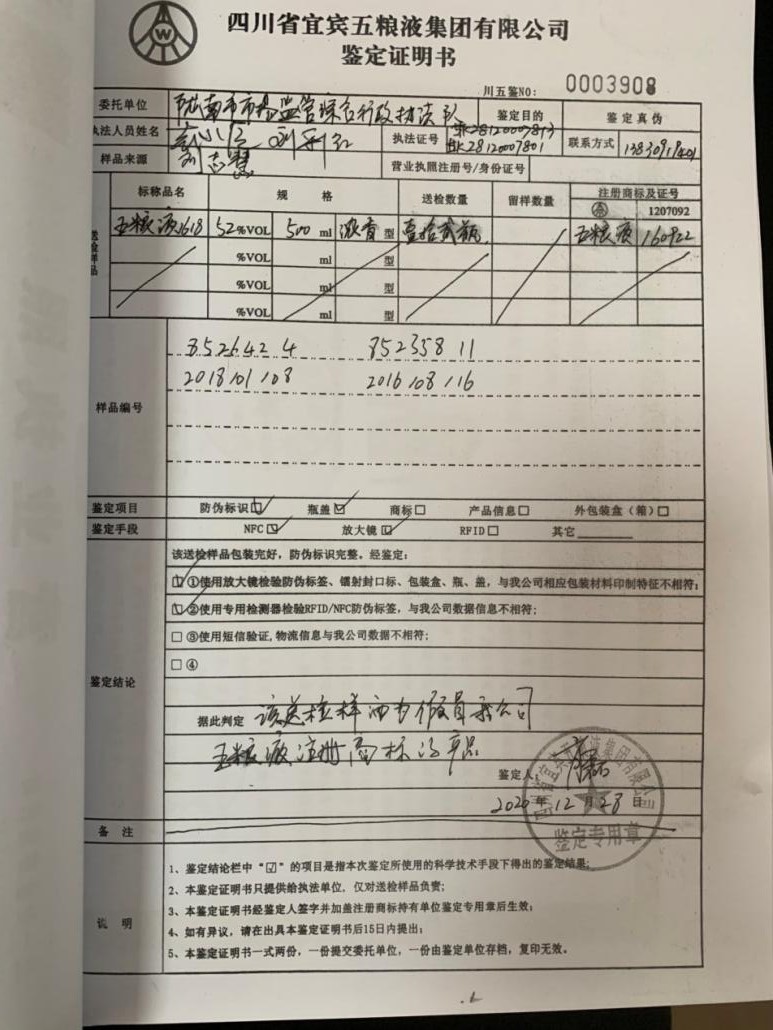 四川省宜宾五粮液集团有限公司
鉴定证明书
川五鉴NO: 0003908
委托单位 陇南市市场监管综合行政执法队 鉴定目的 鉴定真伪
执法人员姓名 执法证号 28120007813 28120007801 联系方式
样品来源 刘志慧 营业执照注册号/身份证号
送检样品 标称品名 规 格 送检数量 留样数量 注册商标及证号
1207092
五粮液1618 52%VOL 500ml 浓香型 壹拾贰瓶 五粮液 160922
%VOL ml 型
%VOL ml 型
%VOL ml 型
样品编号
852642 4 852358 11
2018/01/08 2016/08/16
鉴定项目 防伪标识☑ 瓶盖☑ 商标□ 产品信息□ 外包装盒（箱）□
鉴定手段 NFC☑ 放大镜☑ RFID□ 其它
鉴定结论
该送检样品包装完好，防伪标识完整。经鉴定：
☑①使用放大镜检验防伪标签、镭射封口标、包装盒、瓶、盖，与我公司相应包装材料印制特征不相符；
☑②使用专用检测器检验RFID/NFC防伪标签，与我公司数据信息不相符；
□③使用短信验证,物流信息与我公司数据不相符；
□④
据此判定 该送检样酒为假冒我公司
五粮液注册商标的产品
鉴定人：
2020年12月28日
鉴定专用章
备 注
说 明
1、鉴定结论栏中“☑”的项目是指本次鉴定所使用的科学技术手段下得出的鉴定结果；
2、本鉴定证明书只提供给执法单位，仅对送检样品负责；
3、本鉴定证明书经鉴定人签字并加盖注册商标持有单位鉴定专用章后生效；
4、如有异议，请在出具本鉴定证明书后15日内提出；
5、本鉴定证明书一式两份，一份提交委托单位，一份由鉴定单位存档，复印无效。